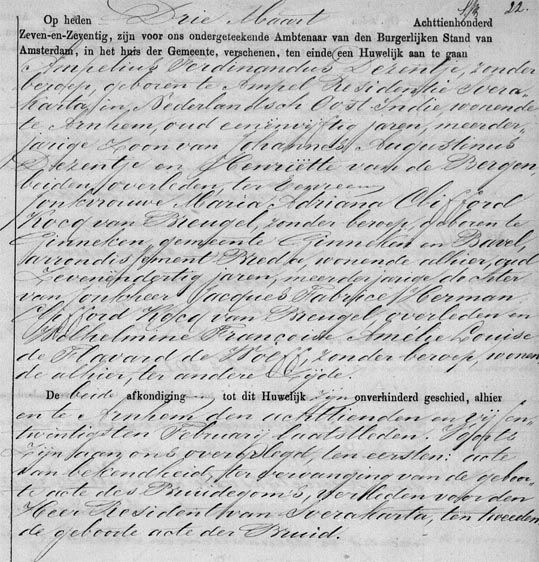 22.
Op heden Drie Maart Achttienhonderd
Zeven-en-Zeventig, zijn voor ons ondergeteekende Ambtenaar van den Burgerlijken Stand van
Amsterdam, in het huis der Gemeente, verschenen, ten einde een Huwelijk aan te gaan
Ampelius Ferdinandus Dezentjé, zonder
beroep, geboren te Ampel Residentie Soera-
karta, in Nederlandsch Oost Indie, wonende
te Arnhem, oud eenenvijftig jaren, meerder-
jarige Zoon van Johannes Augustinus
Dezentjé en Henriëtte van de Bergen,
beiden overleden, ter eenre en
Jonkvrouwe Maria Adriana Clifford
Kocq van Breugel, zonder beroep, geboren te
Ginneken, gemeente Ginneken en Bavel,
arrondissement Breda, wonende alhier, oud
Zevenendertig jaren, meerderjarige dochter
van Jonkheer Jacques Fabrice Herman
Clifford Kocq van Breugel overleden en
Wilhelmine Françoise Amélie Louise
de Flavard de Wolff, zonder beroep, wonen-
de alhier, ter andere Zijde.
De beide afkondiging tot dit Huwelijk zijn onverhinderd geschied, alhier
en te Arnhem, den achttienden en vijfen-
twintigsten Februarij laatstleden. Voorts
zijn aan ons overgelegd, ten eersten: acte
van bekendheid, ter vervanging van de geboor-
te acte des Bruidegoms, verleden voor den
Heer Resident van Soerakarta, ten tweeden
de geboorte acte der Bruid.